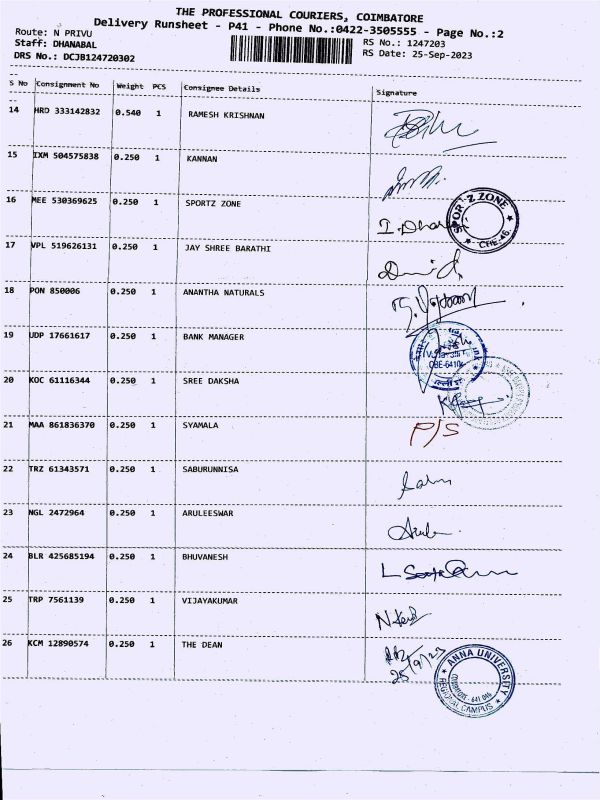 THE PROFESSIONAL COURIERS, COIMBATORE
Delivery Runsheet - P41 - Phone No.:0422-3505555 - Page No.:2
Route: N PRIVU
Staff: DHANABAL
DRS No.: DCJB124720302
RS No.: 1247203
RS Date: 25-Sep-2023
S No Consignment No Weight PCS Consignee Details Signature
--
14 HRD 333142832 0.540 1 RAMESH KRISHNAN
15 IXM 504575838 0.250 1 KANNAN
16 MEE 530369625 0.250 1 SPORTZ ZONE
SPORT-Z ZONE
CBE-46.
17 VPL 519626131 0.250 1 JAY SHREE BARATHI
18 PON 850006 0.250 1 ANANTHA NATURALS
19 UDP 17661617 0.250 1 BANK MANAGER
20 KOC 61116344 0.250 1 SREE DAKSHA
21 MAA 861836370 0.250 1 SYAMALA P/S
22 TRZ 61343571 0.250 1 SABURUNNISA
23 NGL 2472964 0.250 1 ARULEESWAR
24 BLR 425685194 0.250 1 BHUVANESH
25 TRP 7561139 0.250 1 VIJAYAKUMAR
26 KCM 12890574 0.250 1 THE DEAN
25/9/23
ANNA UNIVERSITY
REGIONAL CAMPUS
COIMBATORE - 641 046